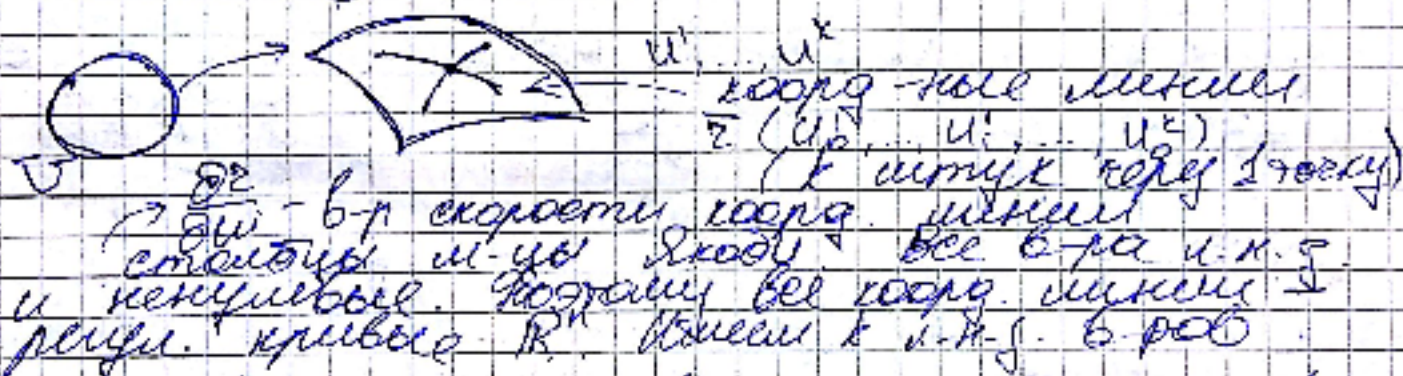 u¹, ... u^k
коорд-ные линии
U r̄ (u₀¹, ... u^i, ... u₀^k)
(k штук через 1 точку)
→ ∂r̄/∂u^i - в-р скорости коорд. линии
столбцы м-цы Якоби. Все в-ра л.н.з.
и ненулевые. Поэтому все коорд. линии -
регул. кривые R^n. Имеем k л.н.з. в-ров.